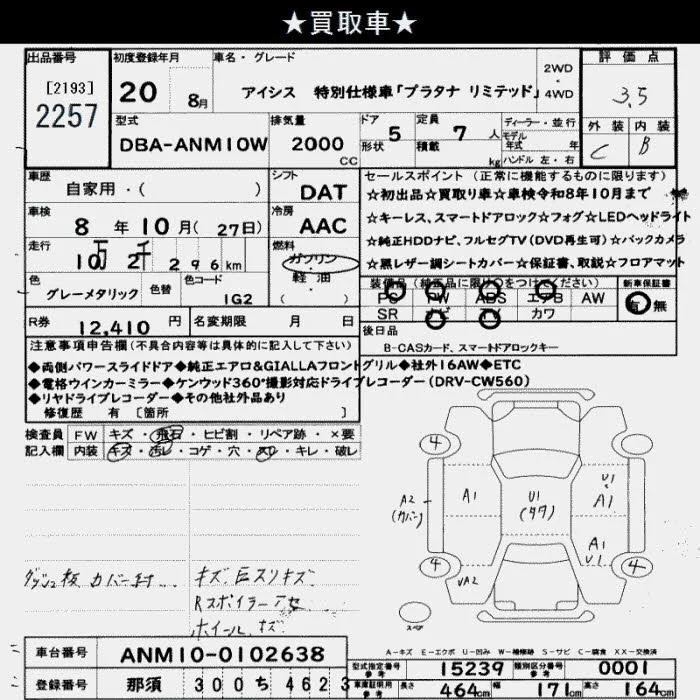 ★買取車★
出品番号
[2193]
2257
初度登録年月
20 8月
車名・グレード
アイシス 特別仕様車「プラタナ リミテッド」
2WD
4WD
評価点
3.5
外装 内装
C B
型式
DBA-ANM10W
排気量
2000 CC
ドア 5
形状
定員 7 人
積載 kg
ディーラー・並行
モデル
年式 年
ハンドル 左・右
車歴
自家用・( )
シフト
DAT
車検
8年10月(27日)
冷房
AAC
走行
10万 2千 296km
燃料
ガソリン
軽・油
( )
色
グレーメタリック
色替
色コード
1G2
R券 12,410円
名変期限 月 日
セールスポイント (正常に機能するものに限ります)
☆初出品☆買取り車☆車検令和8年10月まで
☆キーレス、スマートドアロック☆フォグ☆LEDヘッドライト
☆純正HDDナビ、フルセグTV(DVD再生可)☆バックカメラ
☆黒レザー調シートカバー☆保証書、取説☆フロアマット
装備品(純正品に限り○をつけてください)
PS PW ABS エアB AW
SR ナビ TV カワ
新車保証書
有 無
後日品
B-CASカード、スマートドアロックキー
注意事項申告欄(不具合内容等は具体的に記入して下さい)
◆両側パワースライドドア◆純正エアロ&GIALLAフロントグリル◆社外16AW◆ETC
◆電格ウインカーミラー◆ケンウッド360°撮影対応ドライブレコーダー(DRV-CW560)
◆リヤドライブレコーダー◆その他社外品あり
修復歴 有 [箇所 ]
検査員
記入欄
FW キズ・飛石・ヒビ割・リペア跡・×要
内装 キズ・汚レ・コゲ・穴・スレ・キレ・破レ
ダッシュ板 カバー封
キズ 巨スリキズ
Rスポイラーアセ
ホイールキズ
4 4
A2
(カバー)
A1
U1
(タタ)
U1
A1
A1
U1
4 4
UA2
スペア
A-キズ E-エクボ U-凹み W-補修跡 S-サビ C-腐食 XX-交換済
車台番号 ANM10-0102638
登録番号 那須 300 ち 4623
型式指定番号 参考 15239
類別区分番号 参考 0001
車庫証明用 参考
長さ 464cm 幅 171cm 高さ 164cm